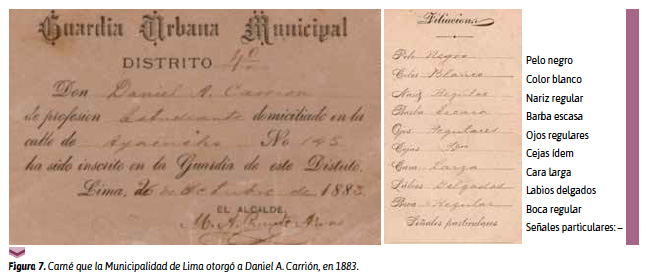 Guardia Urbana Municipal
DISTRITO 4º
Don Daniel A. Carrion
de profesion Estudiante domiciliado en la
calle de Ayacucho No 145
ha sido inscrito en la Guardia de este Distrito.
Lima, 26 de Octubre de 1883
EL ALCALDE,
Filiacion
Pelo Negro
Color Blanco
Nariz Regular
Barba Escasa
Ojos Regulares
Cejas Idem
Cara Larga
Labios Delgados
Boca Regular
Señales particulares
Pelo negro
Color blanco
Nariz regular
Barba escasa
Ojos regulares
Cejas ídem
Cara larga
Labios delgados
Boca regular
Señales particulares: –
Figura 7. Carné que la Municipalidad de Lima otorgó a Daniel A. Carrión, en 1883.